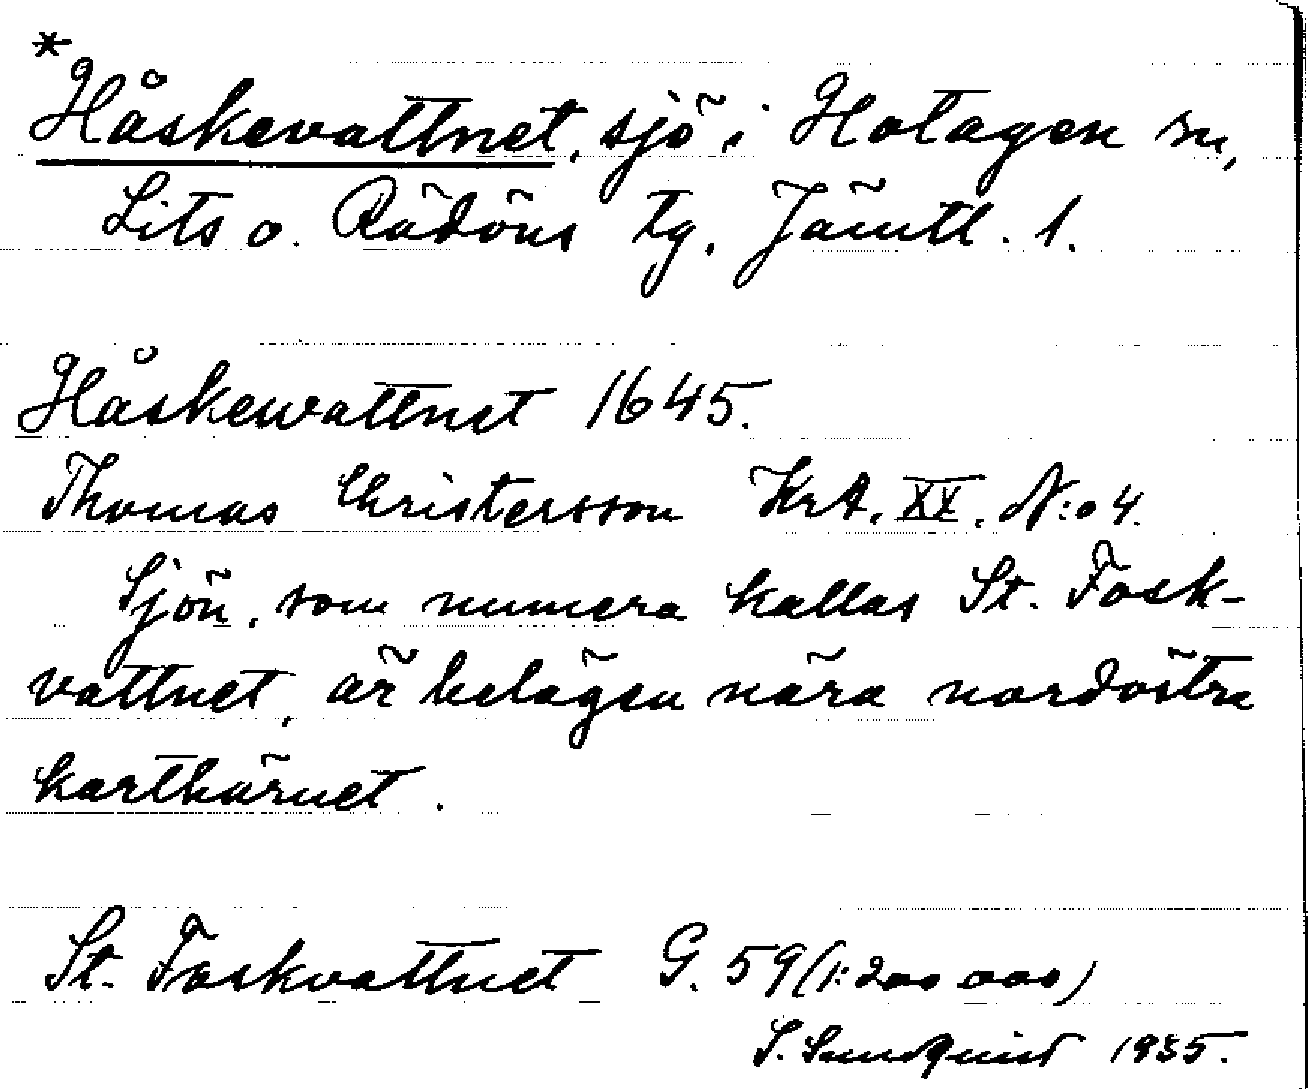 *
Håskevattnet, sjö i Hotagen sn,
Lits o. Rödöns tg. Jämtl. l.
Håskewattnet 1645.
Thomas Christersson KrA. XX. N:o 4.
Sjön, som numera kallas St. Fosk-
vattnet, är belägen nära nordöstra
karthörnet.
St. Foskvattnet G. 59 (1:200 000)
S. Sundquist 1935.